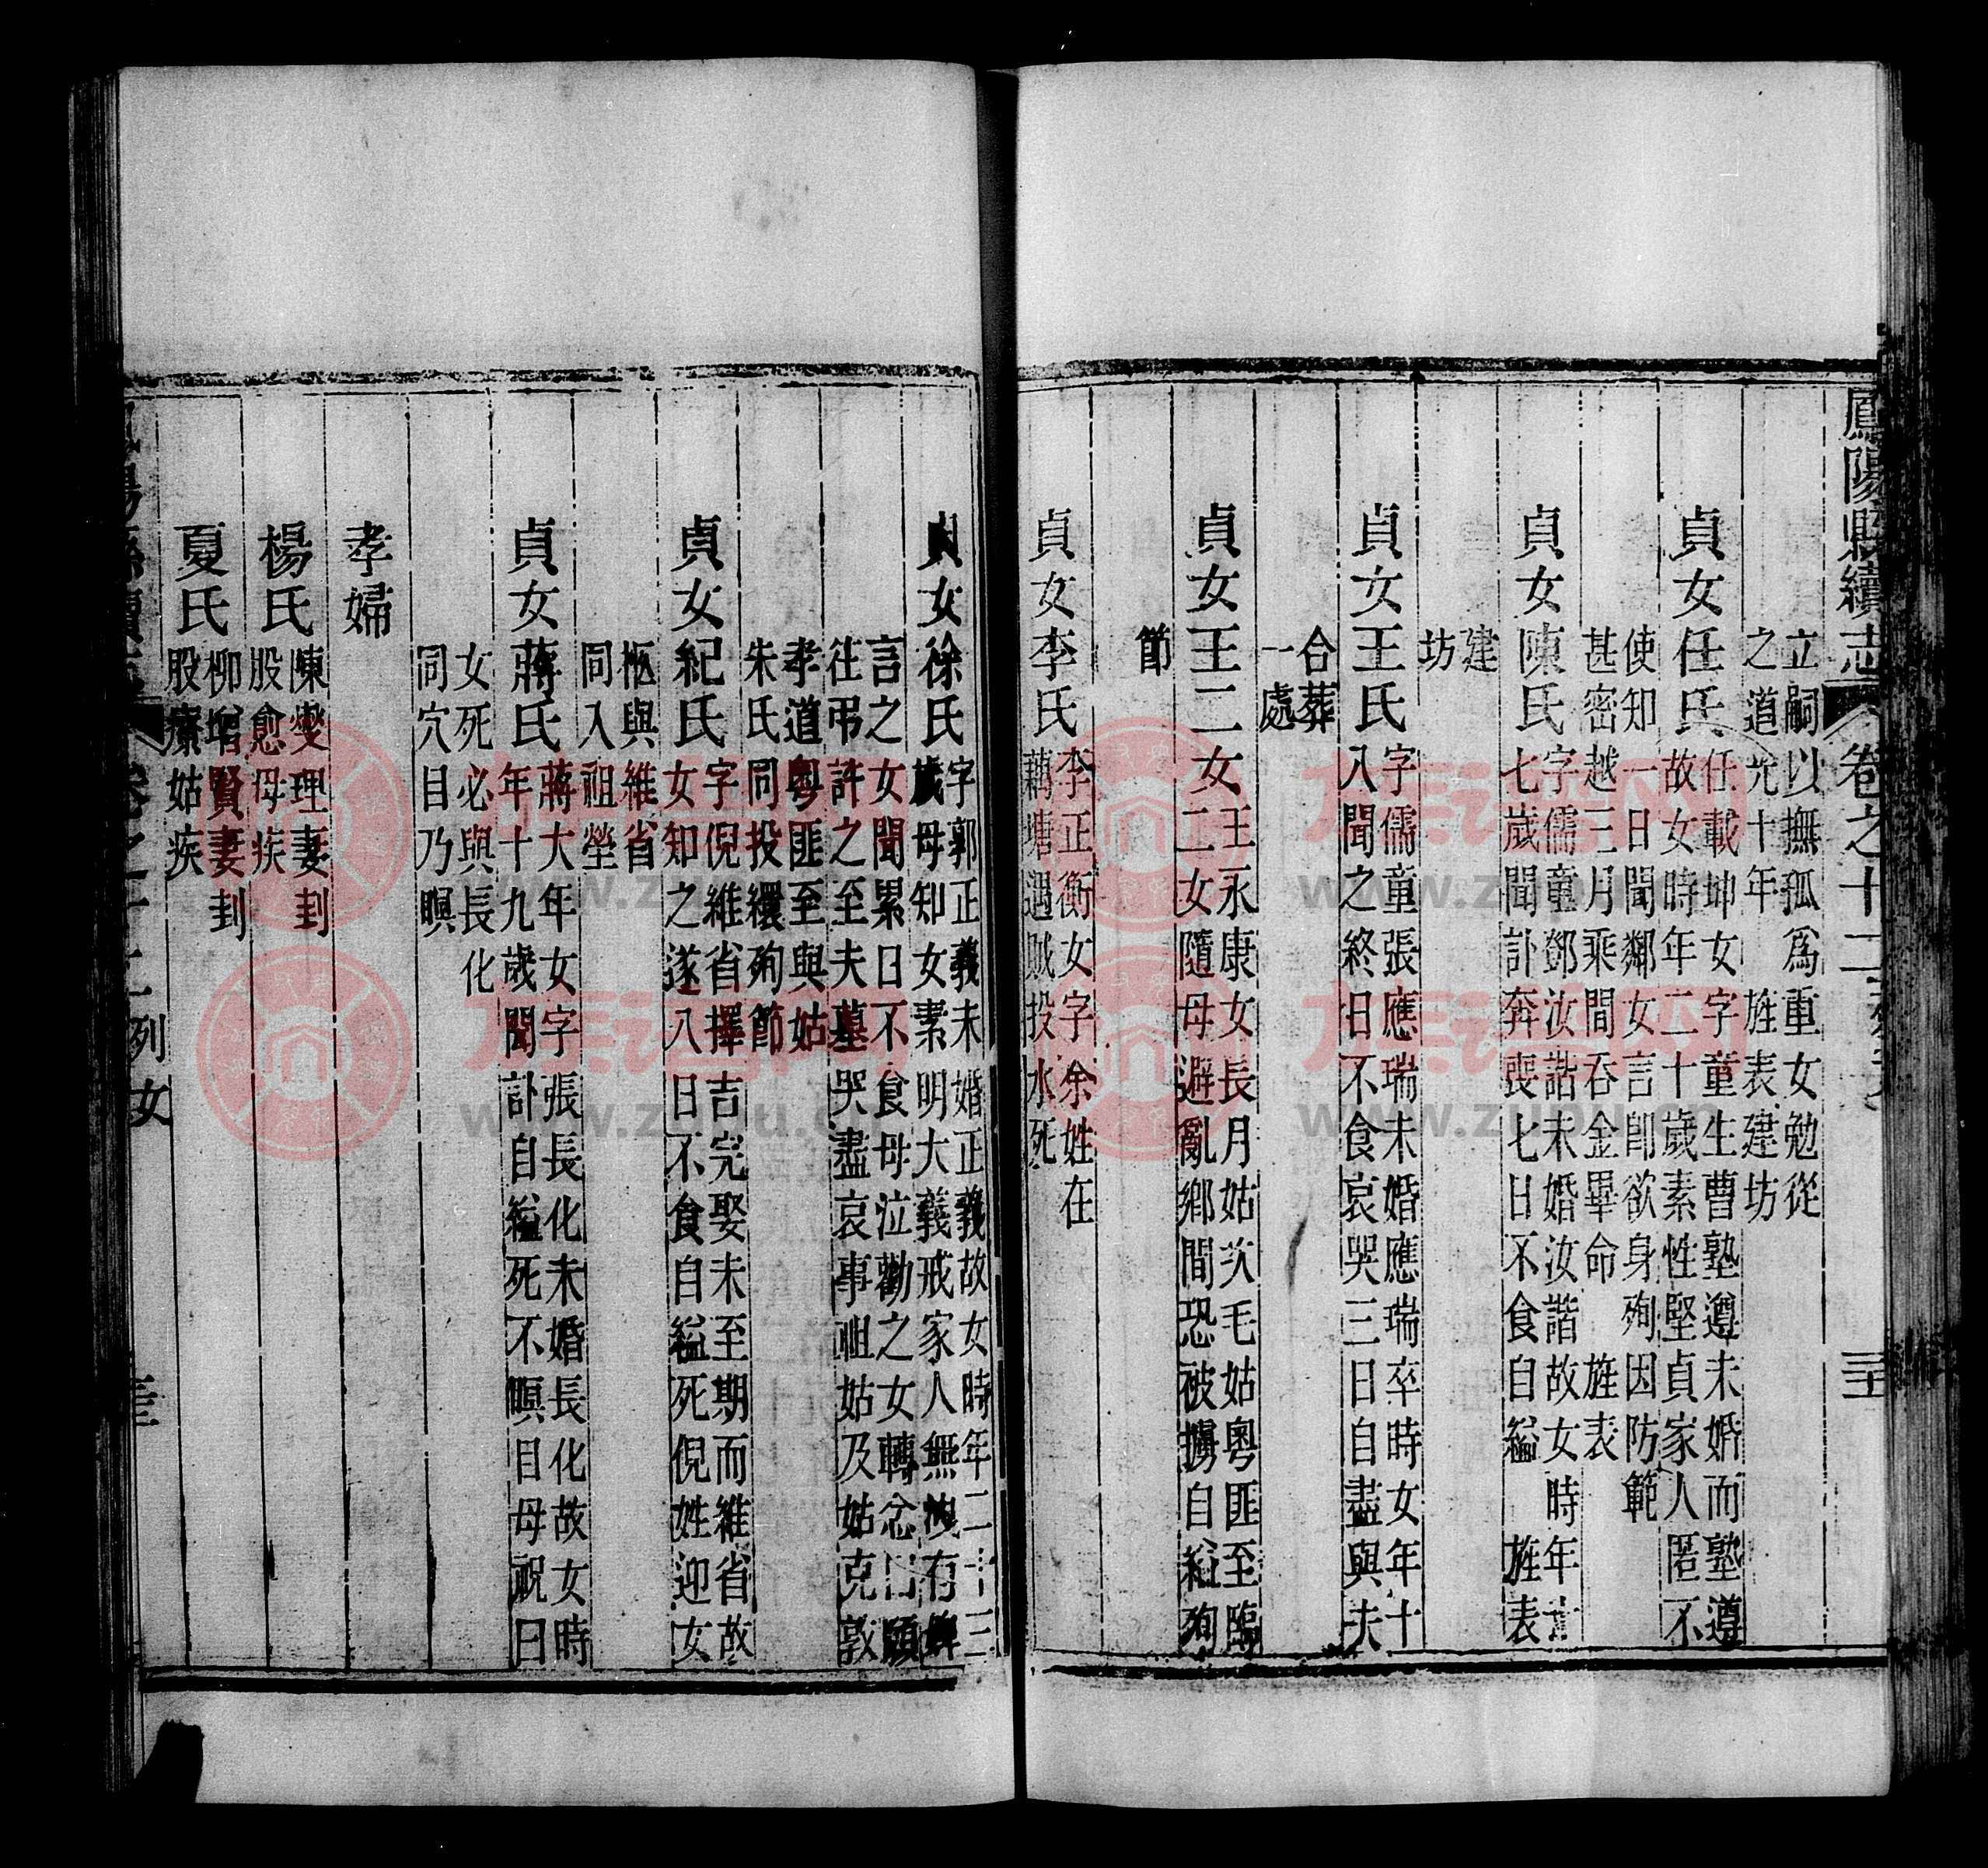 鳳陽縣續志 卷之十二
立嗣以撫孤爲重女勉從
之道光十年 旌表建坊
貞女任氏 任載坤女字童生曹塾遵未婚而塾遵
故女時年二十歲素性堅貞家人匿不
使知一日聞鄰女言卽欲身殉因防範
甚密越三月乘間吞金畢命 旌表
貞女陳氏 字儒童鄧汝諧未婚汝諧故女時年十
七歲聞訃奔喪七日不食自縊 旌表
建
坊
貞女王氏 字儒童張應瑞未婚應瑞卒時女年十
八聞之終日不食哀哭三日自盡與夫
合葬
一處
貞女王二女 王永康女長月姑次毛姑粵匪至臨
二女隨母避亂鄉間恐被擄自縊殉
節
貞女李氏 李正衡女字余姓在
藕塘遇賊投水死
貞女徐氏 字郭正義未婚正義故女時年二十三
歲母知女素明大義戒家人無洩有婢
言之女聞累日不食母泣勸之女轉念曰願
往弔許之至夫墓哭盡哀事祖姑及姑克敦
孝道粵匪至與姑
朱氏同投繯殉節
貞女紀氏 字倪維省擇吉完娶未至期而維省故
女知之遂八日不食自縊死倪姓迎女
柩與維省
同入祖塋
貞女蔣氏 蔣大年女字張長化未婚長化故女時
年十九歲聞訃自縊死不瞑目母祝曰
女死必與長化
同穴目乃瞑
孝婦
楊氏 陳燮理妻刲
股愈母疾
夏氏 柳增賢妻刲
股療姑疾
列女